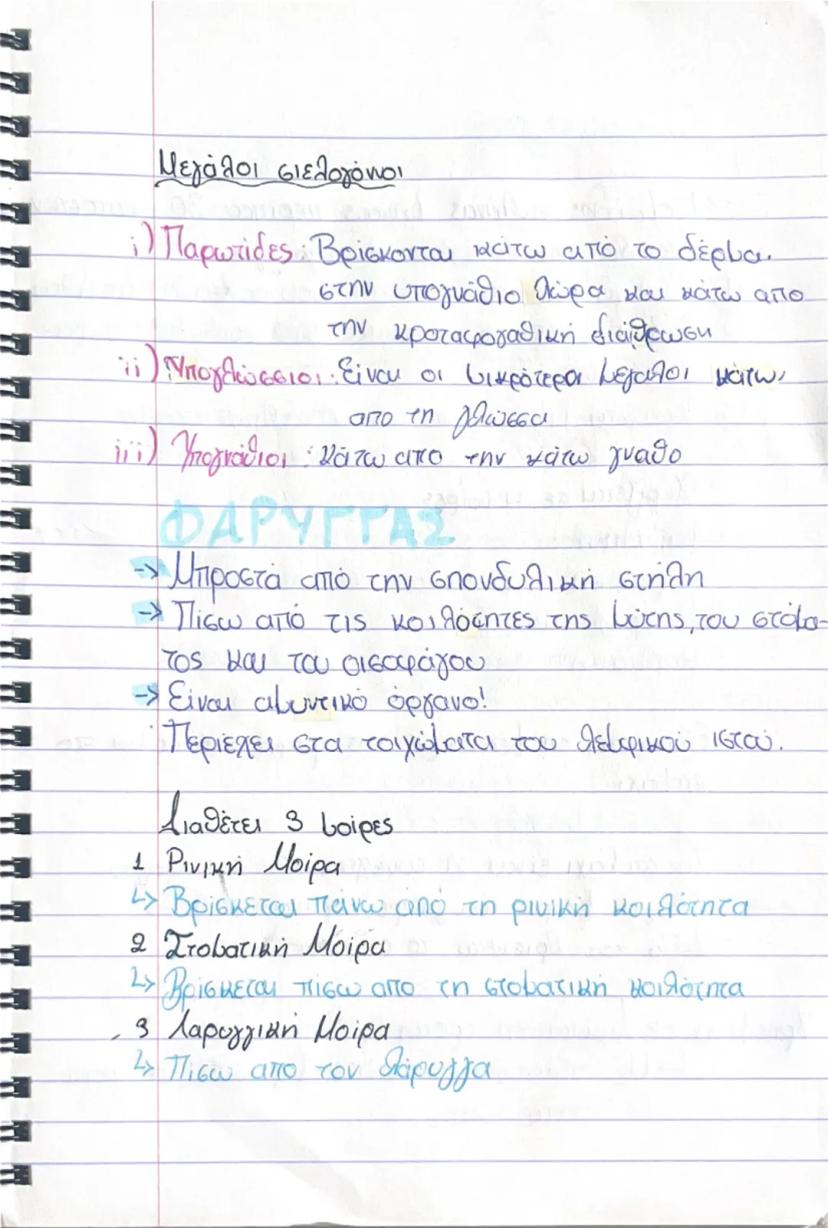 Μεγάλοι σιελογόνοι
i) Παρωτίδες: Βρίσκονται κάτω από το δέρμα.
στην υπογνάθιο χώρα και κάτω απο
την κροταφογαθική διάθρωση
ii) Υπογλώσσιοι: Είναι οι μικρότεροι μεγάλοι κάτω
απο τη γλώσσα
iii) Υπογνάθιοι: κάτω απο την κάτω γναθο
ΦΑΡΥΓΓΑΣ
-> Μπροστά από την σπονδυλική στήλη
-> Πίσω από τις κοιλότητες της μύτης, του στόμα-
τος και του οισοφάγου
-> Είναι αμυντικό όργανο!
Περιέχει στα τοιχώματα του λεμφικού ιστού.
Διαθέτει 3 μοίρες
1 Ρινική Μοίρα
↳ Βρίσκεται πάνω από τη ρινική κοιλότητα
2 Στοματική Μοίρα
↳ Βρίσκεται πίσω απο τη στοματική κοιλότητα
3 Λαρυγγική Μοίρα
↳ Πίσω από τον λάρυγγα